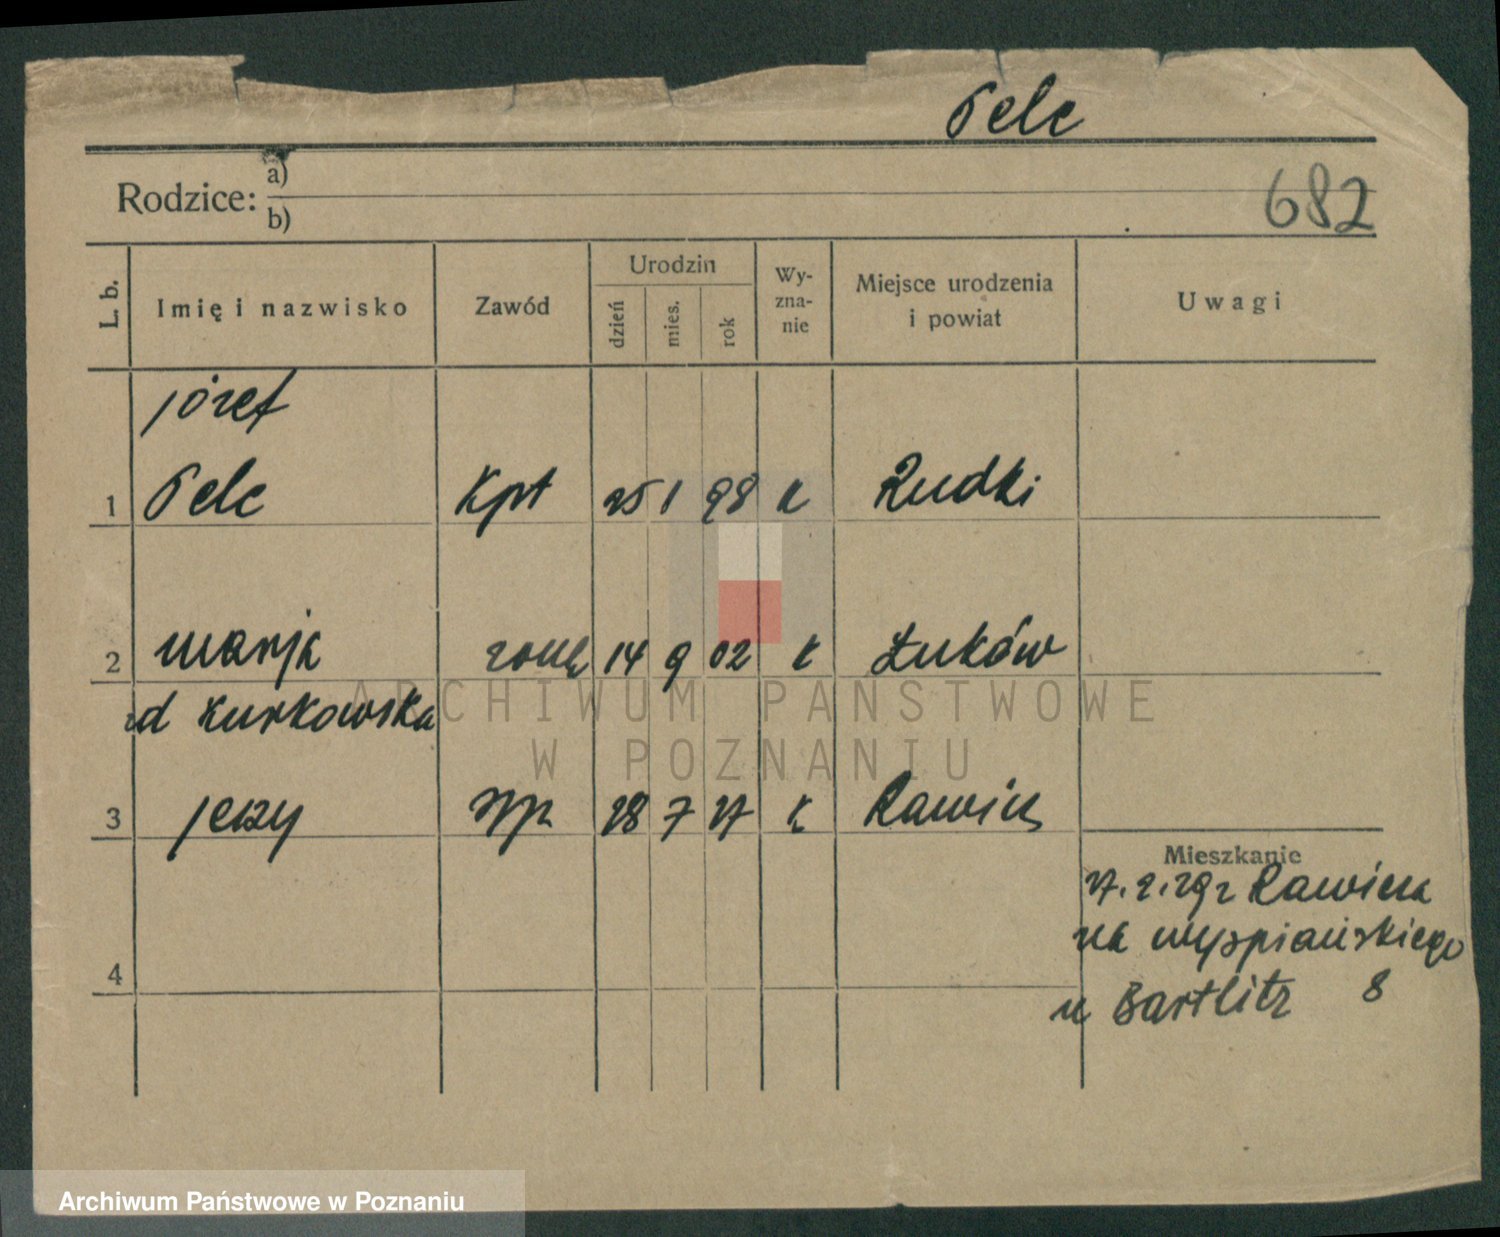 Pelc
Rodzice: a)
b)
682
L. b.
Imię i nazwisko
Zawód
Urodzin
dzień
mies.
rok
Wy-
zna-
nie
Miejsce urodzenia
i powiat
Uwagi
Józef
1 Pelc Kpt 25 1 98 k Rudki
2 Marja żona 14 9 02 k Łuków
zd Kurkowska
3 Jerzy syn 28 7 27 k Rawicz
Mieszkanie
27.2.29 z Rawicza
na Wyspiańskiego
u Bartlitz 8
4
ARCHIWUM PAŃSTWOWE
W POZNANIU
Archiwum Państwowe w Poznaniu